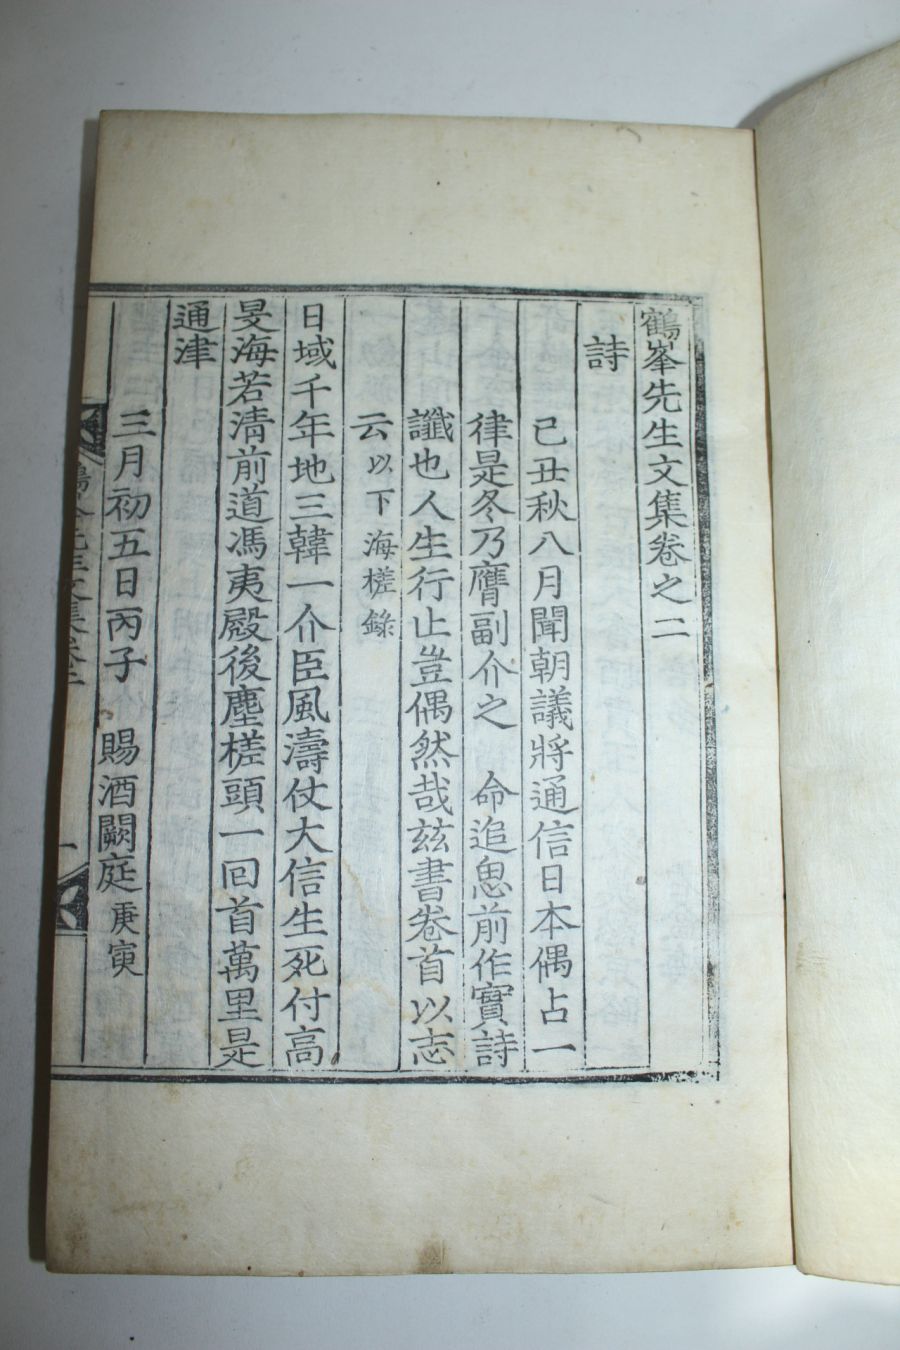 鶴峯先生文集卷之二
詩
已丑秋八月聞朝議將通信日本偶占一
律是冬乃膺副介之　命追思前作實詩
讖也人生行止豈偶然哉玆書卷首以志
云以下海槎錄
日域千年地三韓一介臣風濤仗大信生死付高
旻海若清前道馮夷殿後塵槎頭一回首萬里是
通津
三月初五日丙子　賜酒闕庭庚寅